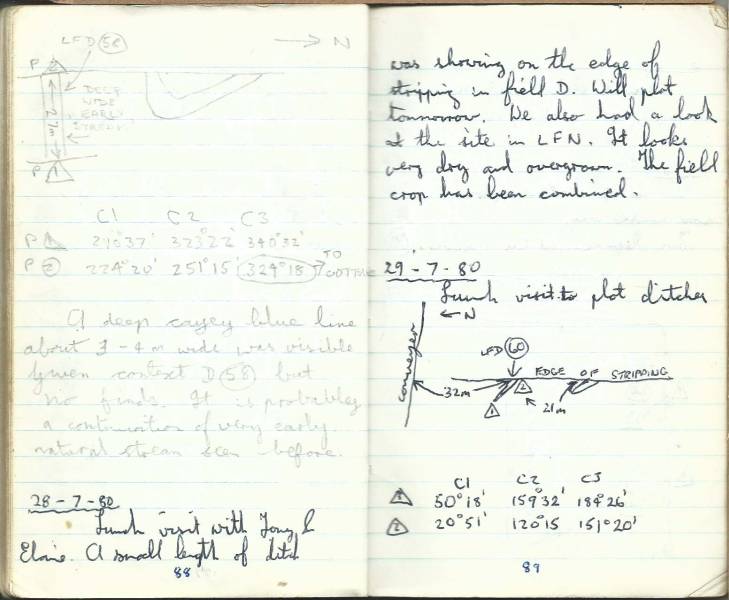 LFD 58
→ N
P 2
DEEP
WIDE
EARLY
STREAM
27m
P 1
C1 C2 C3
P 1 290°37' 323°22' 340°32'
P 2 224°20' 251°15' 324°18' → TO
A deep cayey blue line
about 3-4m wide was visible
Given context D 58 but
no finds. It is probably
a continuation of very early
natural stream seen before.
28-7-80
Lunch visit with Tony &
Elaine. A small length of ditch
88
was showing on the edge of
stripping in field D. Will plot
tomorrow. We also had a look
at the site in LFN. It looks
very dry and overgrown. The field
crop has been combined.
29-7-80
Lunch visit to plot ditches
← N
conveyer
LFD 60
EDGE OF STRIPPING
32m
1
2
21m
C1 C2 C3
1 50°18' 159°32' 184°26'
2 20°51' 120°15 151°20'
89